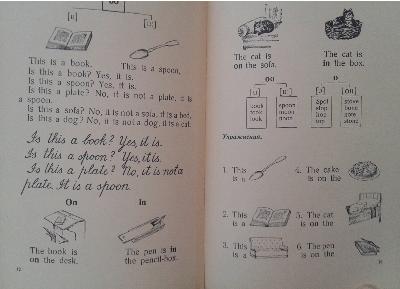 oo
[u] [u:]
This is a book. This is a spoon.
Is this a book? Yes, it is.
Is this a spoon? Yes, it is.
Is this a plate? No, it is not a plate, it is
a spoon.
Is this a sofa? No, it is not a sofa, it is a bed.
Is this a dog? No, it is not a dog, it is a cat.
Is this a book? Yes, it is.
Is this a spoon? Yes, it is.
Is this a plate? No, it is not a
plate. It is a spoon
On In
The book is
on the desk.
The pen is in
the pencil-box.
The cat is
on the sofa.
The cat is
in the box.
oo o
book
took
look
spoon
moon
noon
spot
stop
hop
stove
bone
note
stone
Упражнения.
1. This
is a
2. This
is a
3. This
is a
4. The cake
is on the
5. The cat
is on the
6. The pen
is on the